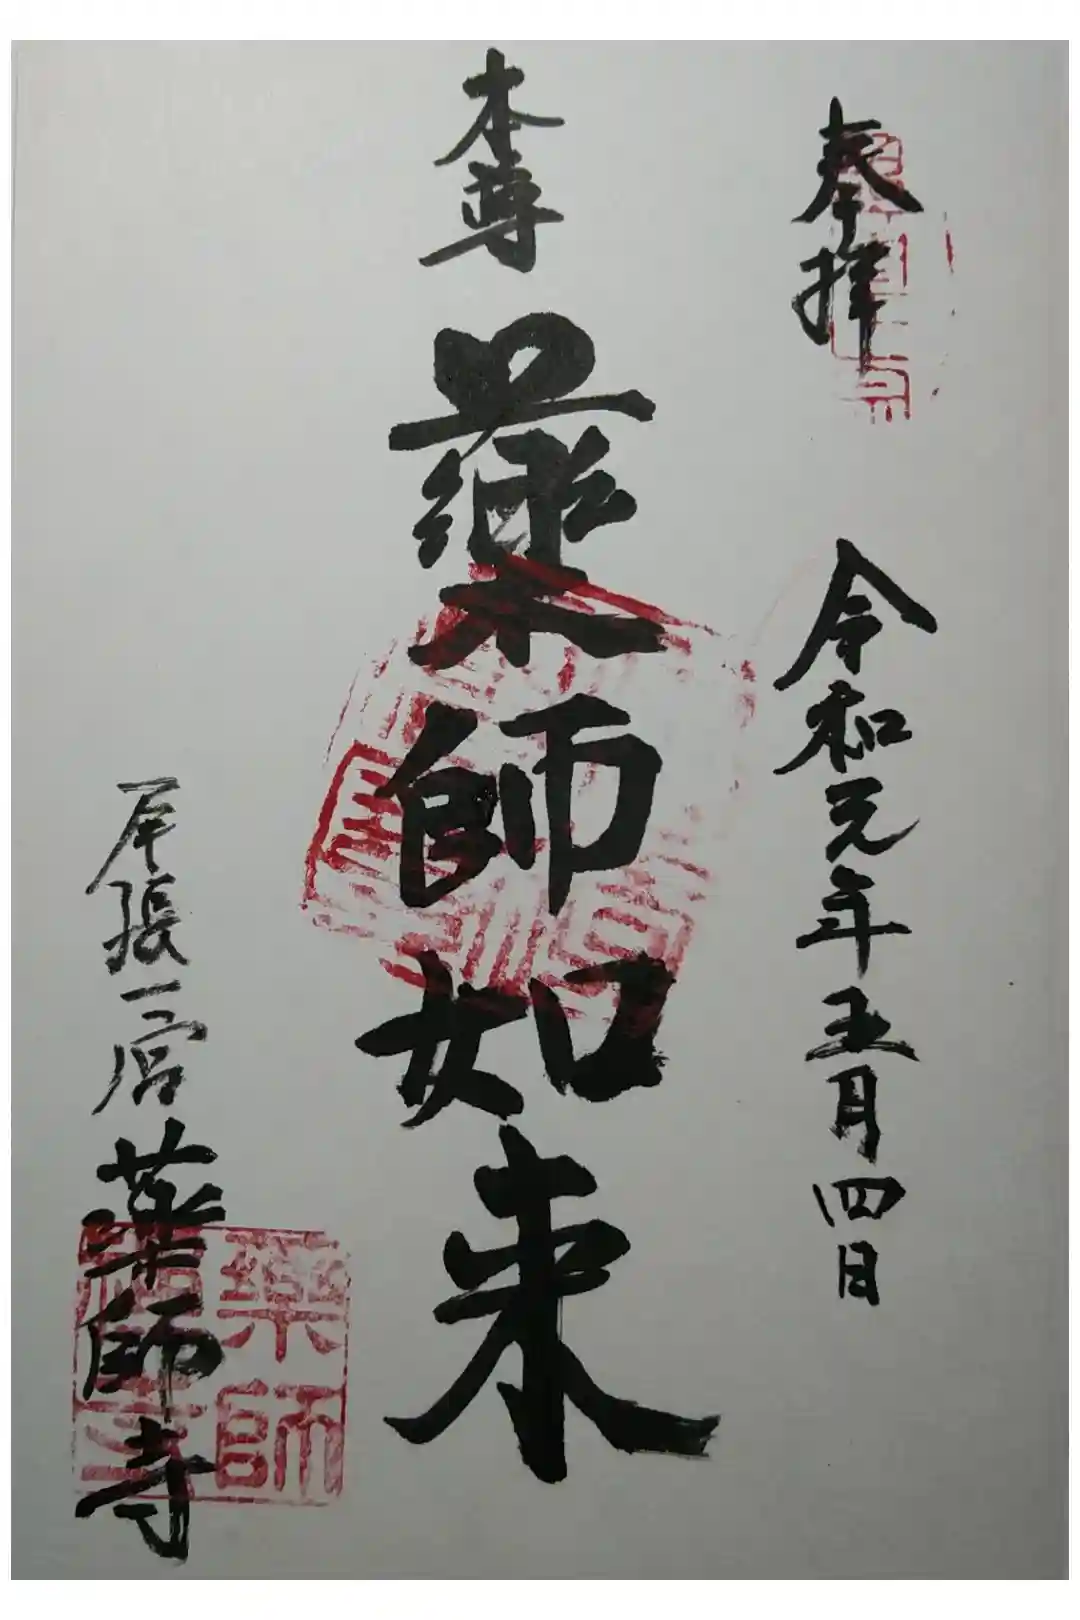 奉拝 令和元年五月四日
本尊 薬師如来
尾張一宮 薬師寺
薬師